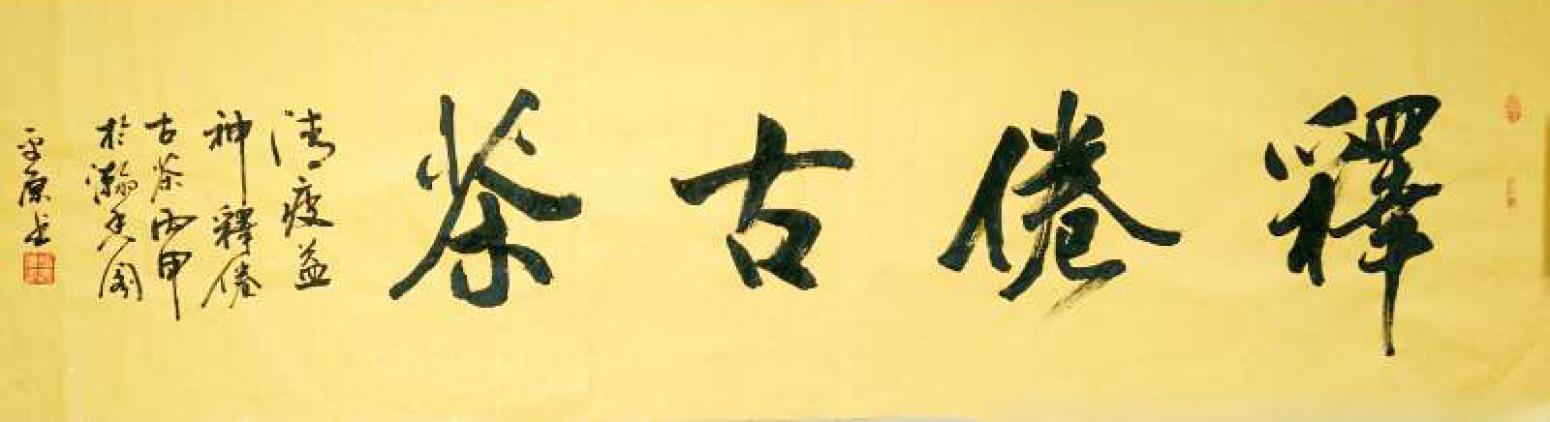 釋倦古茶
清疲益
神釋倦
古茶丙申
於瀚香閣
平原书